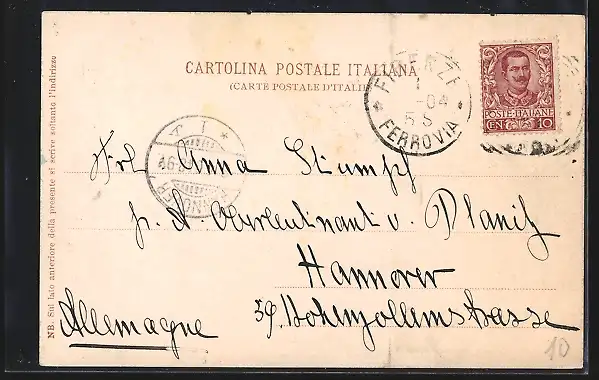 CARTOLINA POSTALE ITALIANA
(CARTE POSTALE D'ITALIE)
FIRENZE
-04
5 S
FERROVIA
POSTE·ITALIANE
CEN 10
Frl. Anna Stumpf
p. A. Oberleutnant v. Planitz
Hannover
Allemagne 59. Hohenzollernstrasse
NB. Sul lato anteriore della presente si scrive soltanto l'indirizzo
10